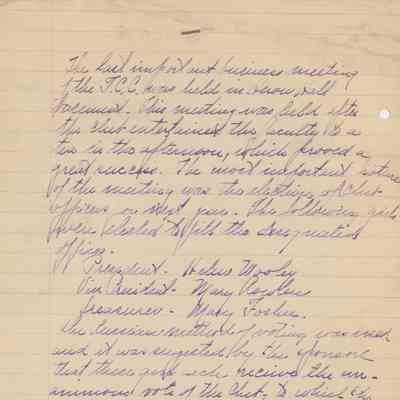 The last important business meeting
of the T.C.C. was held in Heron Hall
basement. This meeting was held after
the club entertained the faculty to a
tea in the afternoon, which proved a
great success. The most important
of the meeting was the election of Club
officers for next year. The following girls
were elected to fill the designated
offices.
President - Helene
Vice President - Mary
Treasurer - Mary
The method of voting was used
and it was suggested by the sponsor
that these girls each receive the un-
animous vote of the Club. To which the